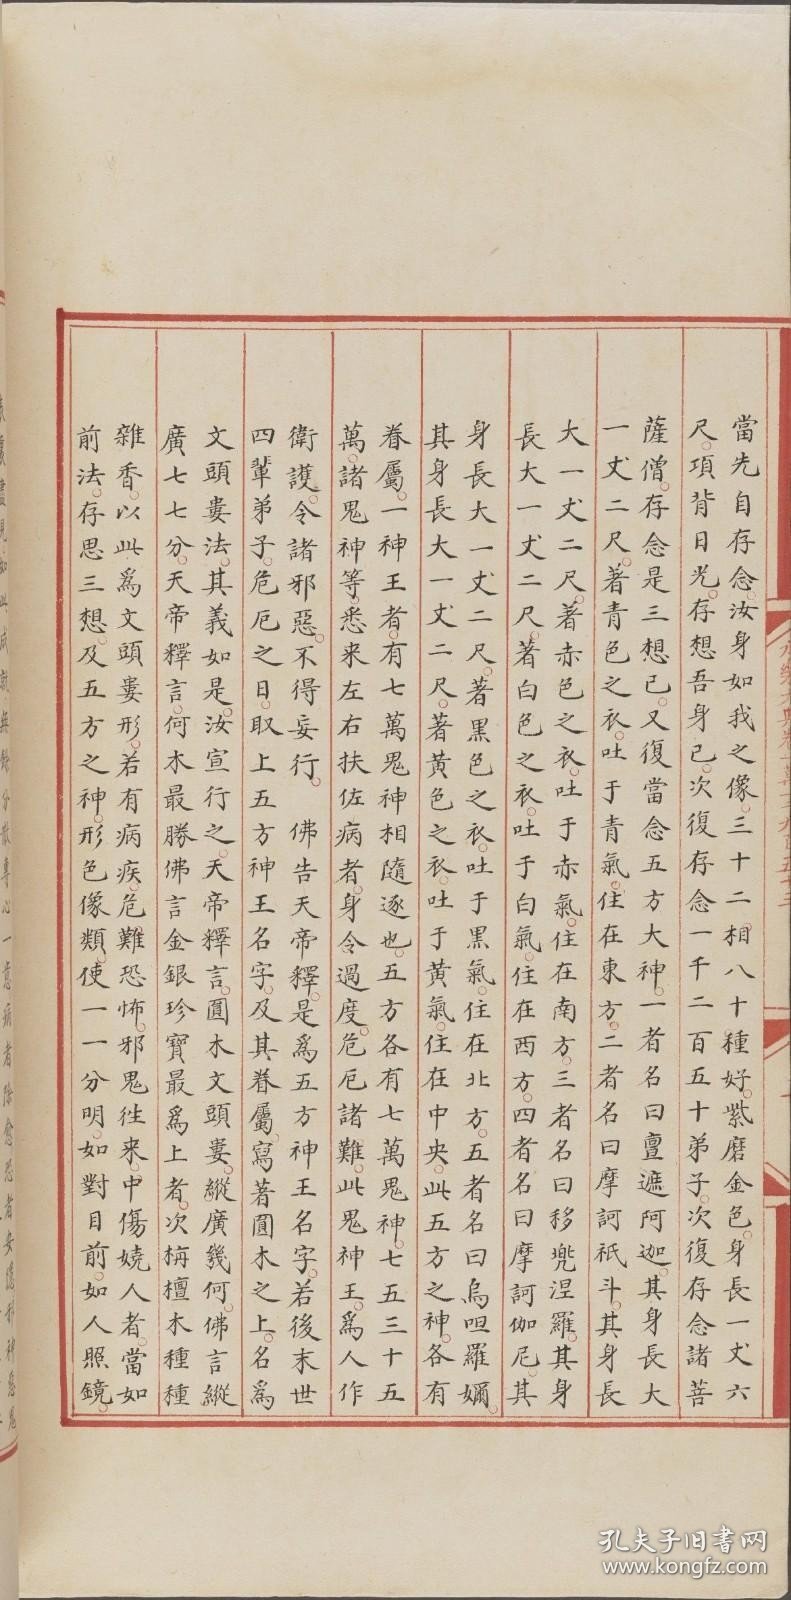 當先自存念。汝身如我之像。三十二相八十種好。紫磨金色。身長一丈六
尺。項背日光。存想吾身已。次復存念一千二百五十弟子。次復存念諸菩
薩僧。存念是三想已。又復當念五方大神。一者名曰亶遮阿迦。其身長大
一丈二尺。著青色之衣。吐于青氣。住在東方。二者名曰摩訶祇斗。其身長
大一丈二尺。著赤色之衣。吐于赤氣。住在南方。三者名曰移兠涅羅。其身
長大一丈二尺。著白色之衣。吐于白氣。住在西方。四者名曰摩訶伽尼。其
身長大一丈二尺。著黑色之衣。吐于黑氣。住在北方。五者名曰烏呾羅嬭。
其身長大一丈二尺。著黃色之衣。吐于黃氣。住在中央。此五方之神。各有
眷屬。一神王者。有七萬鬼神相隨逐也。五方各有七萬鬼神。七五三十五
萬。諸鬼神等。悉來左右扶佐病者。身令過度。危厄諸難。此鬼神王。爲人作
衛護。令諸邪惡。不得妄行。 佛告天帝釋。是爲五方神王名字。若後末世
四輩弟子。危厄之日。取上五方神王名字。及其眷屬。寫著圓木之上。名爲
文頭婁法。其義如是。汝宣行之。天帝釋言。圓木文頭婁。縱廣幾何。佛言縱
廣七七分。天帝釋言。何木最勝佛言金銀珍寶最爲上者。次栴檀木種種
雜香。以此爲文頭婁形。若有病疾。危難恐怖。邪鬼往來。中傷嬈人者。當如
前法。存思三想。及五方之神。形色像類。使一一分明。如對目前。如人照鏡。
孔夫子旧书网
www.kongfz.com